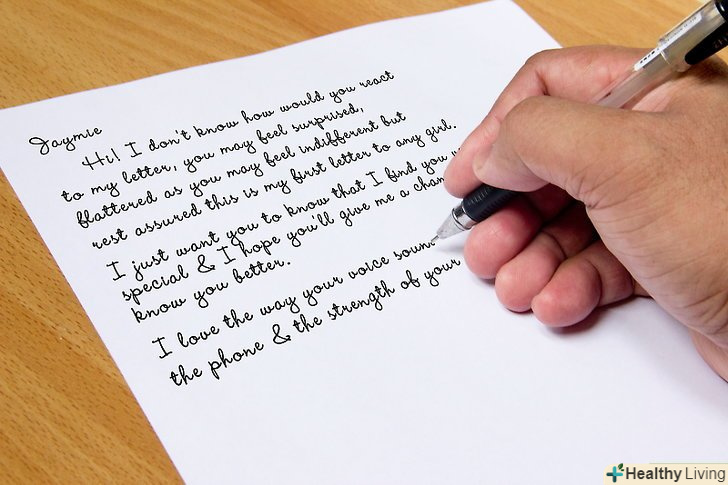 Jaymie
Hi! I don't know how would you react
to my letter, you may feel surprised,
flattered as you may feel indifferent but
rest assured this is my first letter to any girl.
I just want you to know that I find you
special & I hope you'll give me a
know you better.
I love the way your voice
the phone & the strength of your
Healthy Living